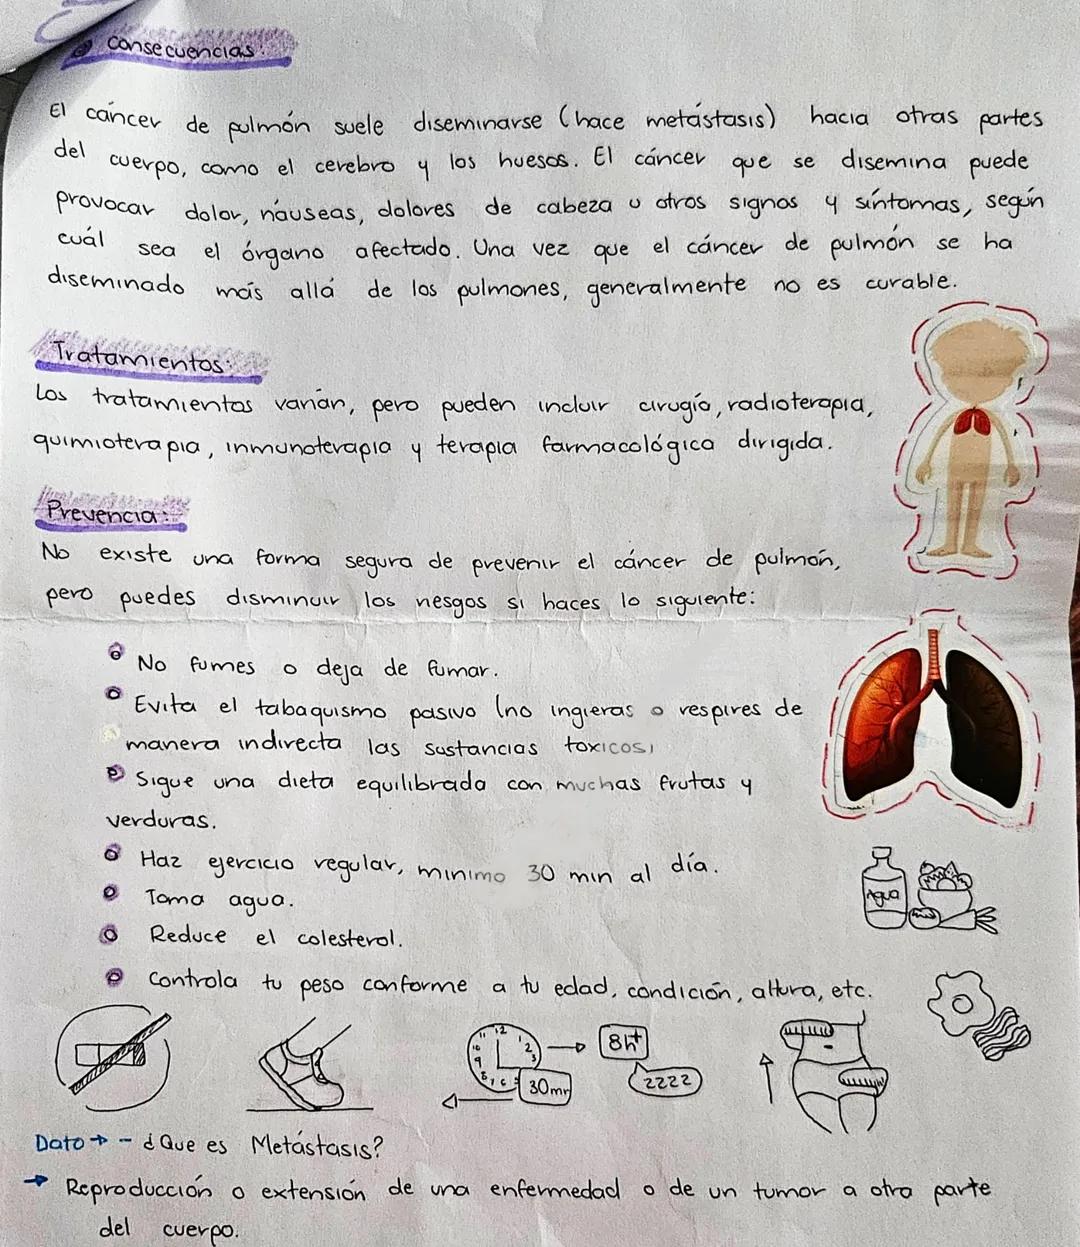 Consecuencias:
El cáncer de pulmón suele diseminarse (hace metástasis) hacia otras partes
del cuerpo, como el cerebro y los huesos. El cáncer que se disemina puede
provocar dolor, náuseas, dolores de cabeza u otros signos y síntomas, según
cuál sea el órgano afectado. Una vez que el cáncer de pulmón se ha
diseminado más allá de los pulmones, generalmente no es curable.
Tratamientos:
Los tratamientos varían, pero pueden incluir cirugía, radioterapia,
quimioterapia, inmunoterapia y terapia farmacológica dirigida.
Prevencia:
No existe una forma segura de prevenir el cáncer de pulmón,
pero puedes disminuir los riesgos si haces lo siguiente:
No fumes o deja de fumar.
Evita el tabaquismo pasivo (no ingieras o respires de
manera indirecta las sustancias toxicos)
Sigue una dieta equilibrada con muchas frutas y
verduras.
Haz ejercicio regular, minimo 30 min al día.
Toma agua.
Agua
Reduce el colesterol.
Controla tu peso conforme a tu edad, condición, altura, etc.
8h+
30mn
zzzz
Dato → - ¿Que es Metástasis?
→ Reproducción o extensión de una enfermedad o de un tumor a otra parte
del cuerpo.